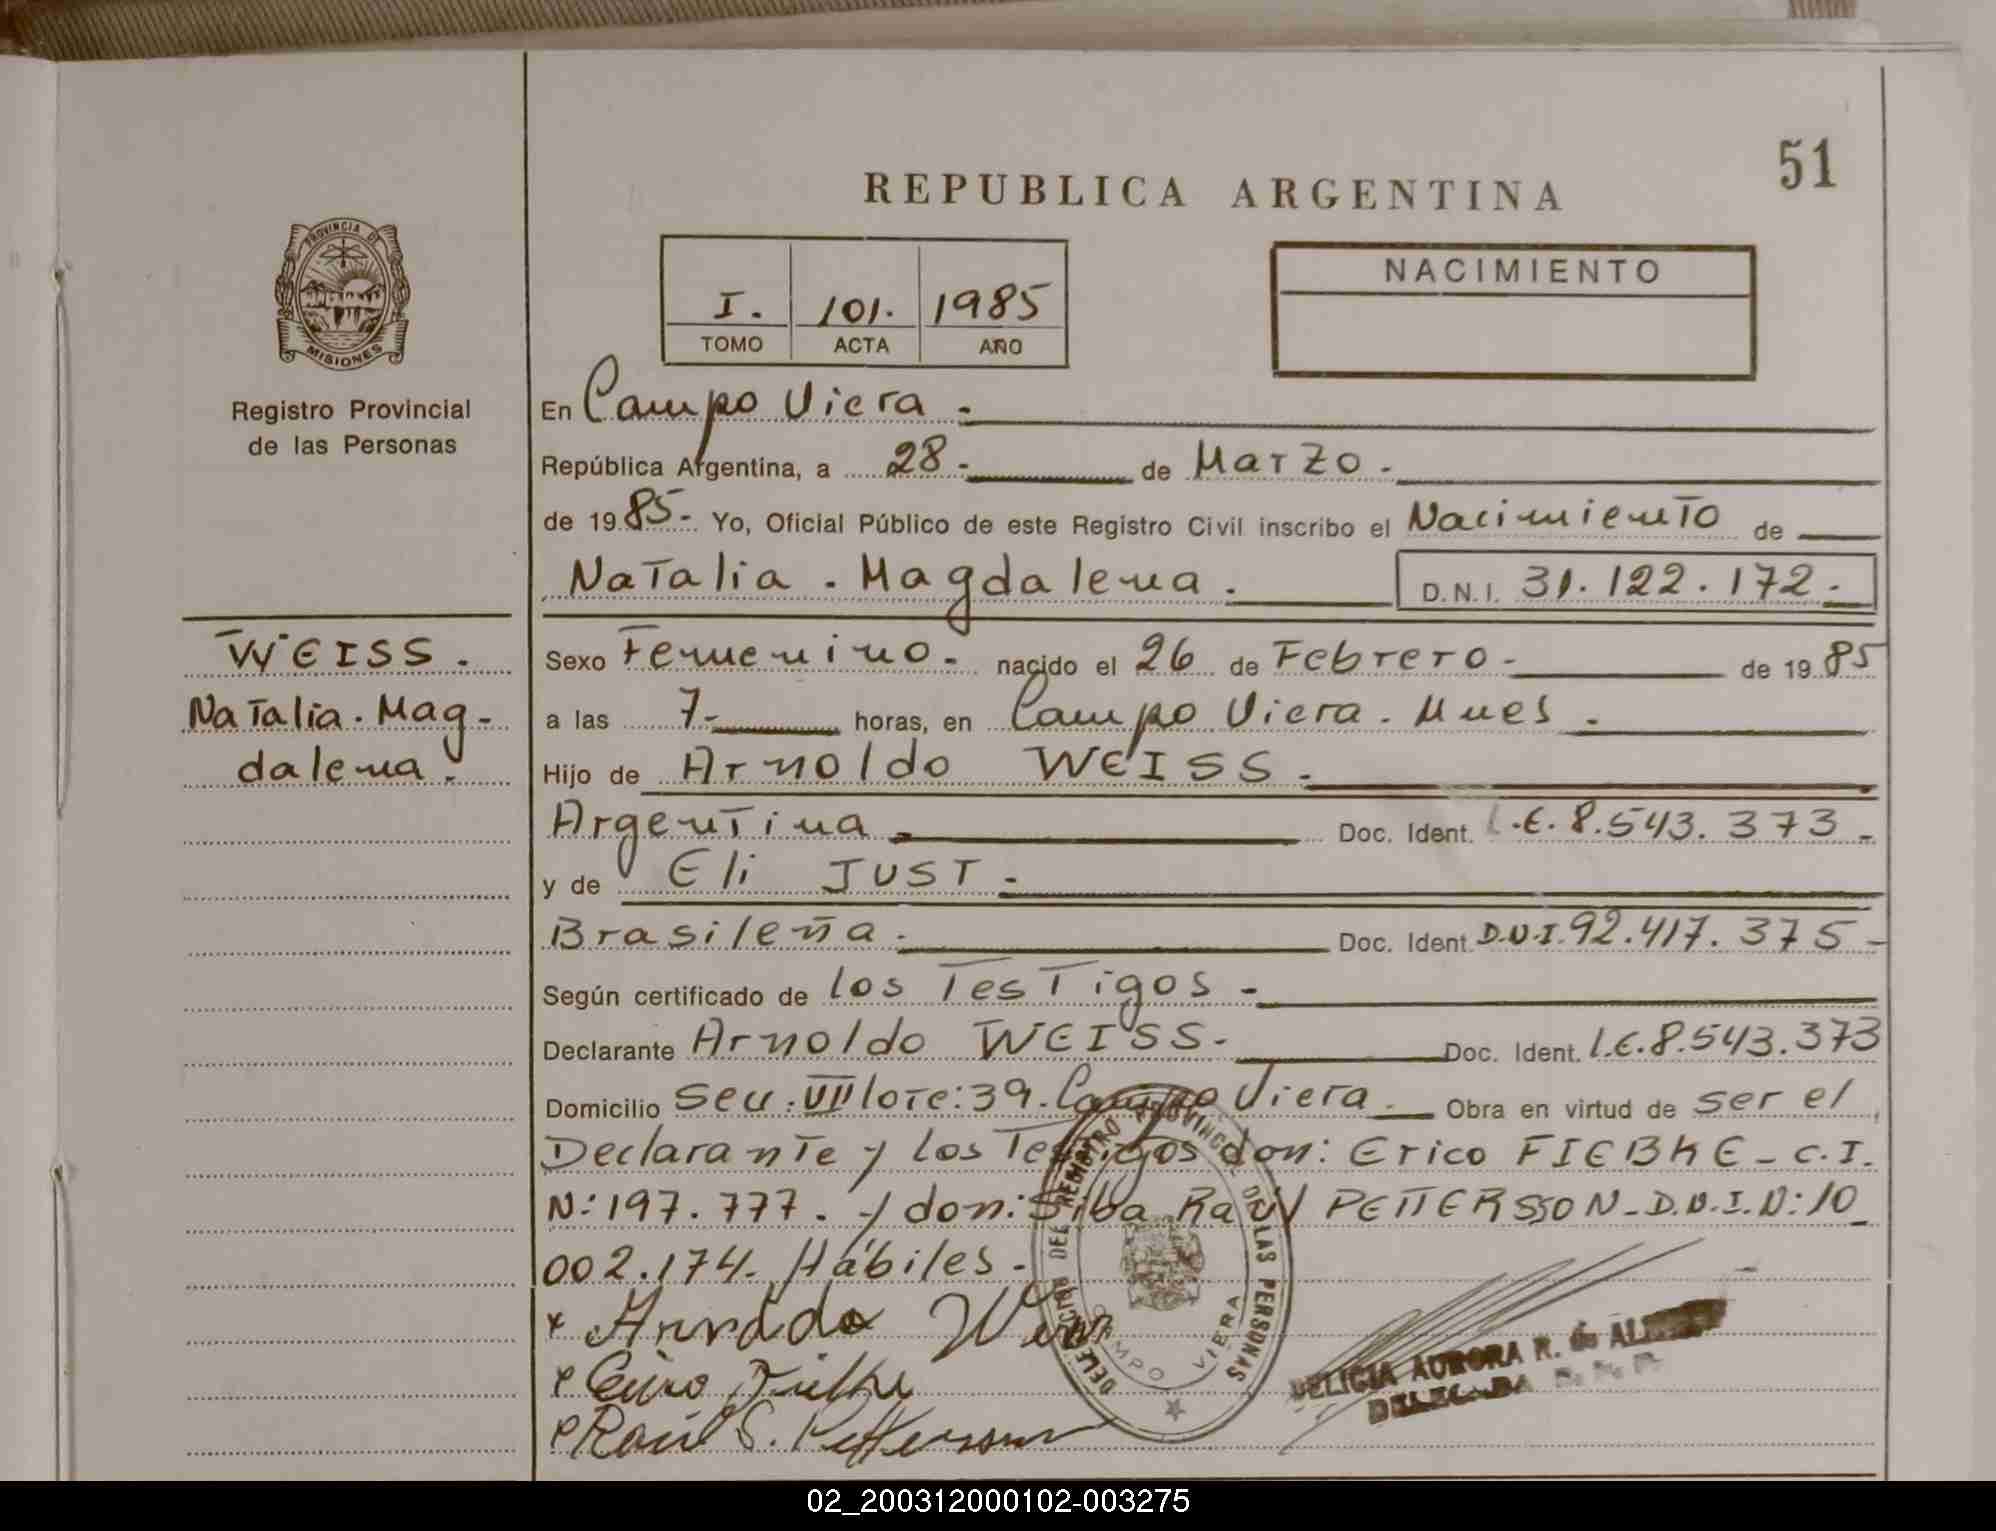 51
REPUBLICA ARGENTINA
PROVINCIA DE
MISIONES
Registro Provincial
de las Personas
I. 101. 1985
TOMO ACTA AÑO
NACIMIENTO
En Campo Viera.
República Argentina, a 28- de Marzo.
de 1985- Yo, Oficial Público de este Registro Civil inscribo el Nacimiento de
Natalia. Magdalena. D.N.I. 31.122.172.
WEISS.
Natalia. Mag-
dalena.
Sexo Femenino- nacido el 26 de Febrero- de 1985
a las 7- horas, en Campo Viera. Mnes.
Hijo de Arnoldo WEISS.
Argentina. Doc. Ident. L.E. 8.543.373-
y de Eli JUST.
Brasileña. Doc. Ident. D.N.I. 92.417.375-
Según certificado de los Testigos-
Declarante Arnoldo WEISS. Doc. Ident. L.E. 8.543.373
Domicilio Secc. VII lote: 39. Campo Viera. Obra en virtud de ser el
Declarante y los Testigos don: Erico FIEBKE - C.I.
N: 197.777. y don: Siba Raúl PETTERSSON - D.N.I. N: 10
002.174. Hábiles.
x Arnoldo Weiss
Raúl S. Pettersson
DELEGACION DEL REGISTRO PROVINCIAL DE LAS PERSONAS
CAMPO VIERA
DELICIA AURORA R. de
DELEGADA
02_200312000102-003275